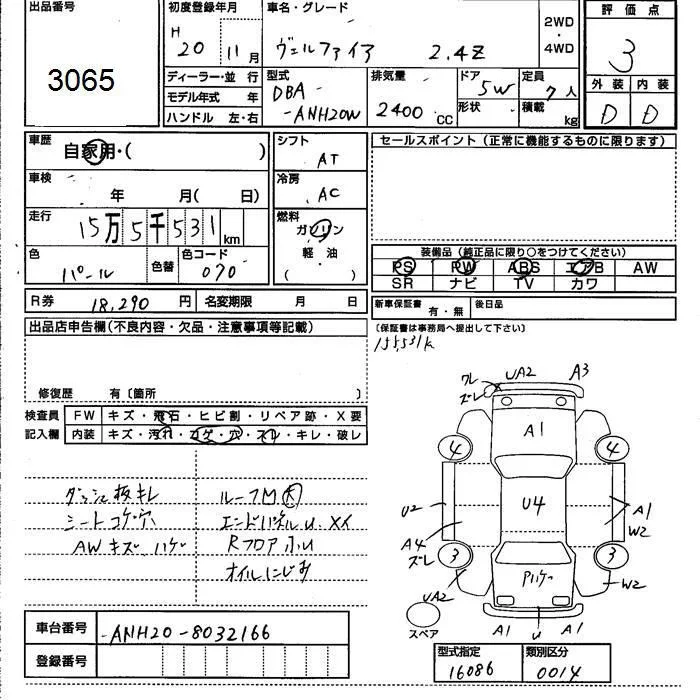 出品番号
3065
初度登録年月
H 20 11月
車名・グレード
ヴェルファイア 2.4Z
2WD
・
4WD
評価点
3
外装 内装
D D
ディーラー・並行
モデル年式 年
ハンドル 左・右
型式
DBA-
-ANH20W
排気量
2400 CC
ドア
5W
形状
定員
7人
積載
kg
車歴
自家用・( )
車検
年 月( 日)
走行
15万5千531km
色
パール
色替
色コード
070
シフト
AT
冷房
AC
燃料
ガソリン
軽油
( )
セールスポイント(正常に機能するものに限ります)
装備品(純正品に限り○をつけてください)
PS PW ABS エアB AW
SR ナビ TV カワ
R券 18,290円 名変期限 月 日
新車保証書 有・無 後日品
(保証書は事務局へ提出して下さい)
155,531k
出品店申告欄(不良内容・欠品・注意事項等記載)
修復歴 有〔箇所 〕
検査員 FW キズ・飛石・ヒビ割・リペア跡・X要
記入欄 内装 キズ・汚れ・コゲ・穴・スレ・キレ・破レ
ダッシュ板キレ
シートコゲ穴
AWキズハゲ
ルーフM大
エンドパネルu.XX
Rフロアふu
オイルにじみ
ワレ
ズレ
UA2 A3
A1
4 4
U2 U4 A1
W2
A4
ズレ
3 3
Pハゲ
UA2 W2
A1 u A1
スペア
車台番号 -ANH20-8032166
登録番号
型式指定 類別区分
16086 0014